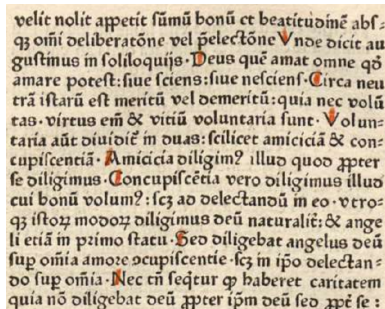 velit nolit appetit sūmū bonū et beatitudinē abſ⸗
qꝫ om̄i deliberatōne vel p̄electōne Vnde dicit au
guſtinus in ſoliloquijs· Deus quē amat omne qđ
amare poteſt: ſiue ſciens: ſiue neſciens· Circa neu
trā iſtarū eſt meritū vel demeritū: quia nec volū
tas· virtus em̄ & vitiū voluntaria ſunt· Volun⸗
taria aūt diuidit̄ in duas: ſcilicet amiciciā & con⸗
cupiſcentiā· Amicicia diligimꝰ illud quod ꝓpter
ſe diligimus· Concupiſcētia vero diligimus illud
cui bonū volumꝰ: ſcꝫ ad delectandū in eo· vtro⸗
qꝫ iſtoꝝ modoꝝ diligimus deū naturalit̄: & ange
li etiā in primo ſtatu· Sed diligebat angelus deū
ſuꝑ om̄ia amore ↄcupiſcentie· ſcꝫ in ip̄o delectan⸗
do ſuꝑ om̄ia· Nec tn̄ ſeq̄tur ꝙ haberet caritatem
quia nō diligebat deū ꝓpter ip̄m deū ſed ꝓpt̄ ſe: